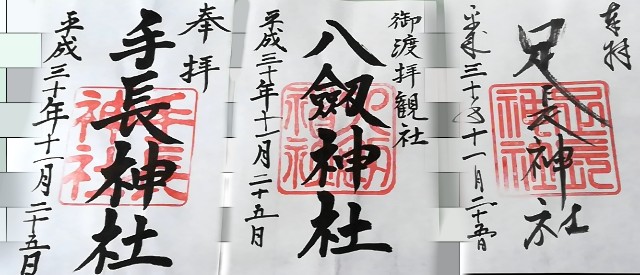 奉拝
手長神社
平成三十年十一月二十五日
御渡拝観社
八劔神社
平成三十年十一月二十五日
奉拝
足長神社
平成三十年十一月二十五日